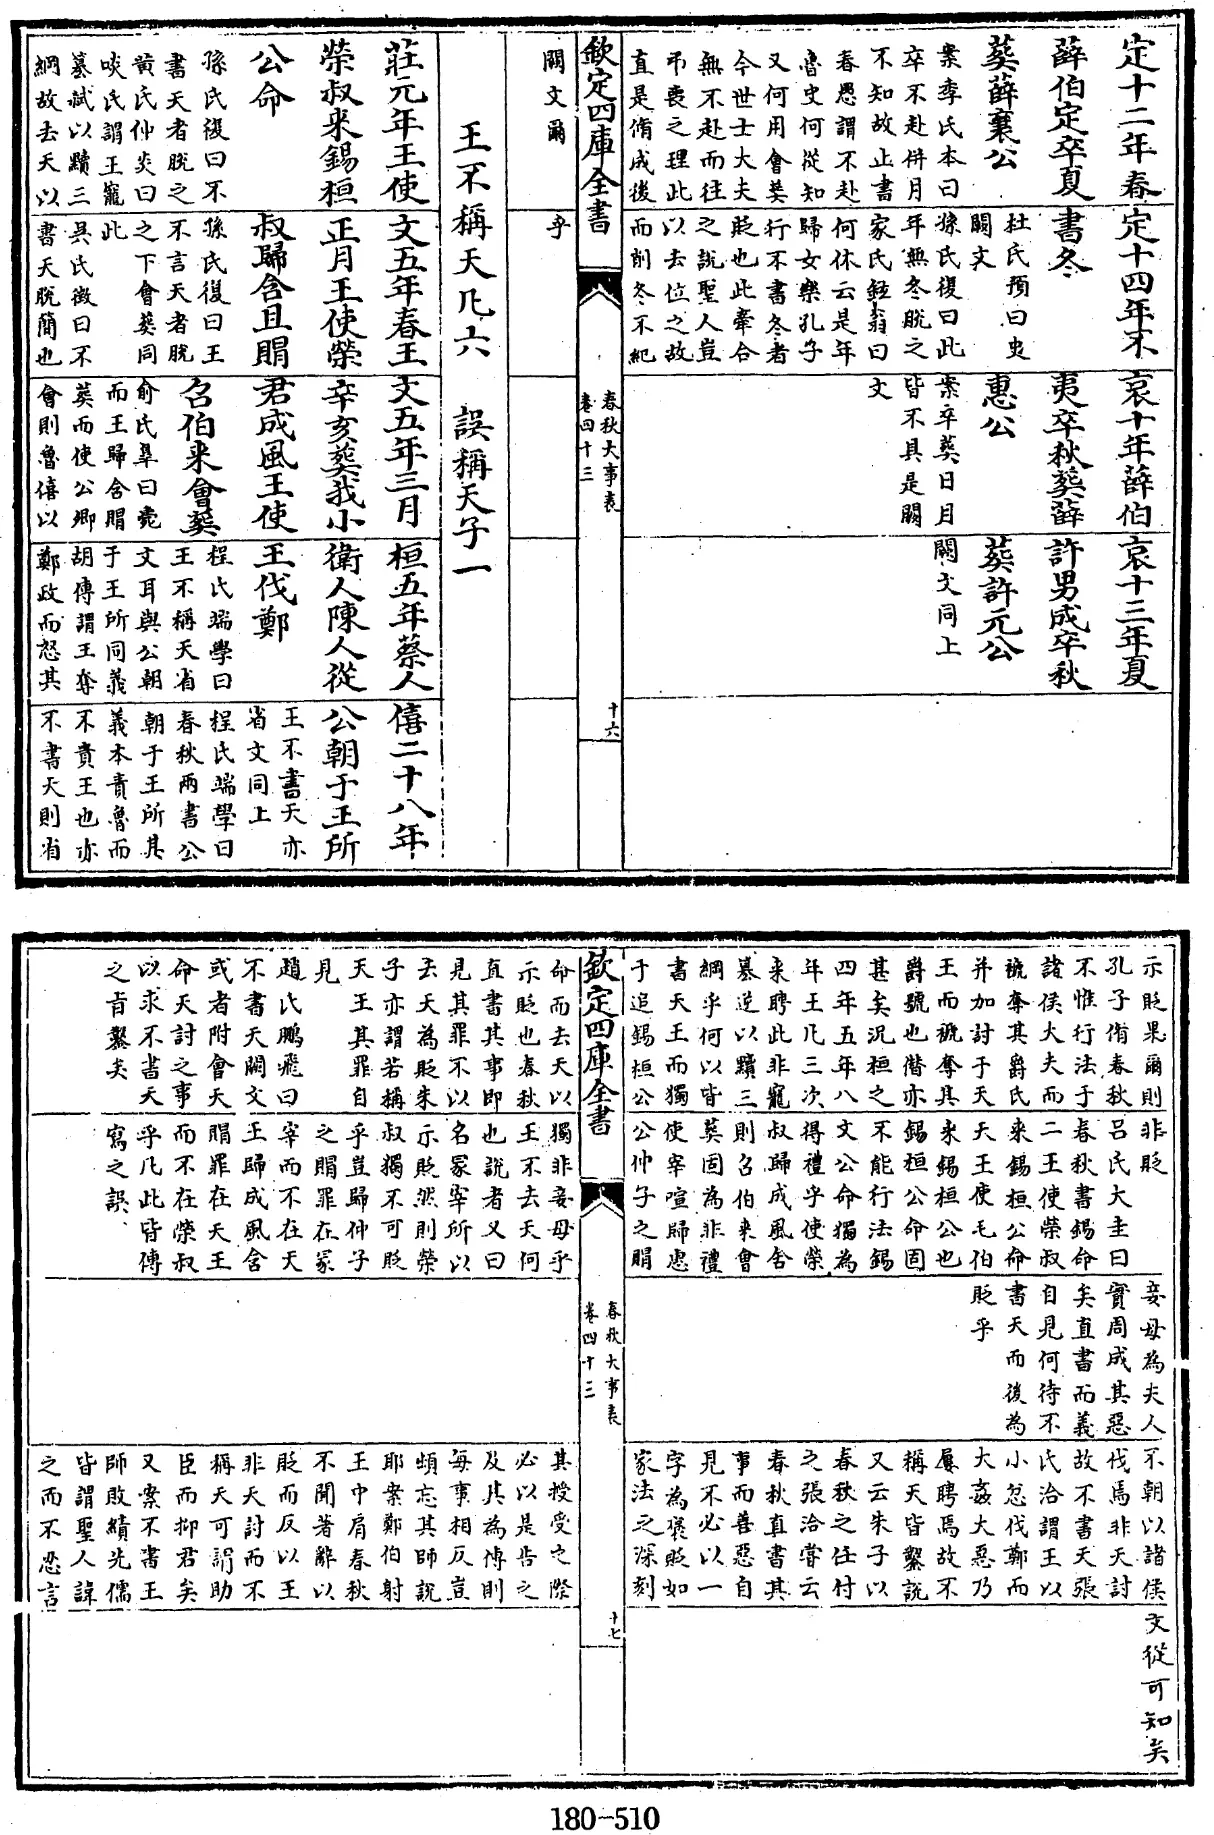 定十二年春
薛伯定卒夏
葬薛襄公
案季氏本曰
卒不赴併月
不知故止書
春愚謂不赴
魯史何從知
又何用會葬
今世士大夫
無不赴而往
弔喪之理此
直是脩成後
定十四年不
書冬
杜氏預曰史
闕文
孫氏復曰此
年無冬脫之
家氏鉉翁曰
何休云是年
歸女樂孔子
行不書冬者
貶也此牽合
之說聖人豈
以去位之故
而削冬不紀
哀十年薛伯
夷卒秋葬薛
惠公
案卒葬日月
皆不具是闕
文
哀十三年夏
許男成卒秋
葬許元公
闕文同上
欽定四庫全書
春秋大事表
卷四十三
十六
闕文爾
乎
王不稱天凡六　誤稱天子一
莊元年王使
榮叔来錫桓
公命
孫氏復曰不
書天者脫之
黃氏仲炎曰
啖氏謂王寵
簒弑以黷三
綱故去天以
文五年春王
正月王使榮
叔歸含且賵
孫氏復曰王
不言天者脫
之下會葬同
此
吳氏澂曰不
書天脫簡也
文五年三月
辛亥葬我小
君成風王使
召伯来會葬
俞氏臯曰薨
而王歸含賵
葬而使公卿
會則魯僖以
桓五年蔡人
衛人陳人從
王伐鄭
程氏端學曰
王不稱天省
文耳與公朝
于王所同義
胡傳謂王奪
鄭政而怒其
僖二十八年
公朝于王所
王不書天亦
省文同上
程氏端學曰
春秋兩書公
朝于王所其
義本責魯而
不責王也亦
不書天則省
示貶果爾則
孔子脩春秋
不惟行法于
諸侯大夫而
褫奪其爵氏
并加討于天
王而褫奪其
爵號也僭亦
甚矣況桓之
四年五年八
年王凡三次
来聘此非寵
簒逆以黷三
綱乎何以皆
書天王而獨
于追錫桓公
非貶
呂氏大圭曰
春秋書錫命
二王使榮叔
来錫桓公命
天王使毛伯
来錫桓公也
錫桓公命固
不能行法錫
文公命獨為
得禮乎使榮
叔歸成風含
則召伯来會
葬固為非禮
使宰咺歸惠
公仲子之賵
妾母為夫人
實周成其惡
矣直書而義
自見何待不
書天而後為
貶乎
不朝以諸侯
伐焉非天討
故不書天張
氏洽謂王以
小忿伐鄭而
大姦大惡乃
屢聘焉故不
稱天皆鑿說
又云朱子以
春秋之任付
之張洽嘗云
春秋直書其
事而善惡自
見不必以一
字為褒貶如
家法之深刻
文從可知矣
欽定四庫全書
春秋大事表
卷四十三
十七
命而去天以
示貶也春秋
直書其事即
見其罪不以
去天為貶朱
子亦謂若稱
天王其罪自
見
趙氏鵬飛曰
不書天闕文
或者附會天
命天討之事
以求不書天
之旨鑿矣
獨非妾母乎
王不去天何
也說者又曰
名冢宰所以
示貶然則榮
叔獨不可貶
乎豈歸仲子
之賵罪在冢
宰而不在天
王歸成風含
賵罪在天王
而不在榮叔
乎凡此皆傳
寫之誤
其授受之際
必以是告之
及其為傳則
每事相反豈
頓忘其師說
耶案鄭伯射
王中肩春秋
不聞著辭以
貶而反以王
非天討而不
稱天可謂助
臣而抑君矣
又案不書王
師敗績先儒
皆謂聖人諱
之而不忍言
180-510